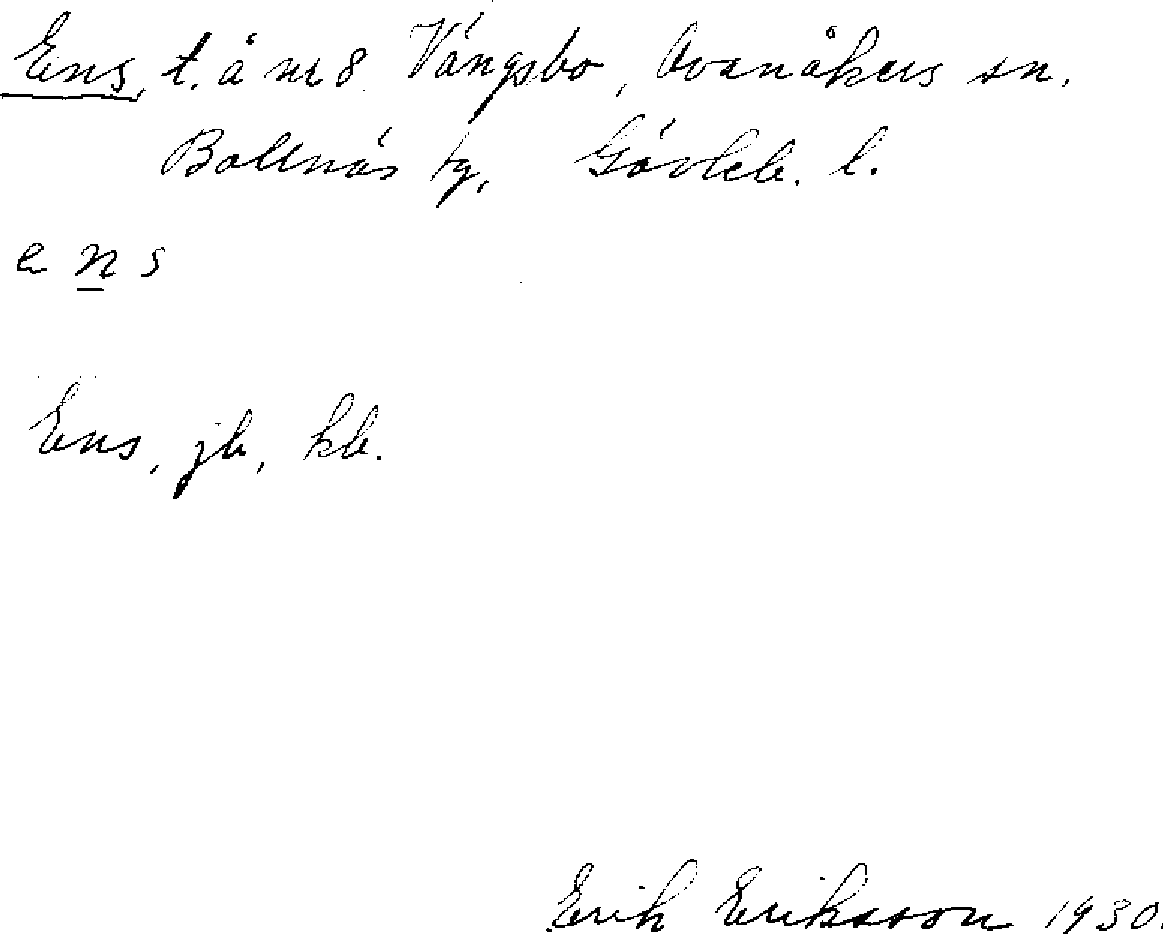 Ens, t. å nr 8 Vängsbo, Ovanåkers sn.
Bollnäs tg, Gävleb. l.
e n s
Ens, jb, kb.
Erik Eriksson 1930.